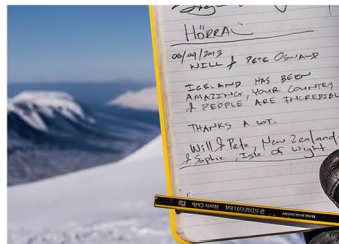 HÖRRA
06/04/2013
WILL & PETE OSWALD
ICELAND HAS BEEN
AMAZING, YOUR COUNTRY
& PEOPLE ARE INCREDIBL
THANKS A LOT.
Will & Pete, New Zealand
& Sophie, Isle of Wight
STAEDTLER